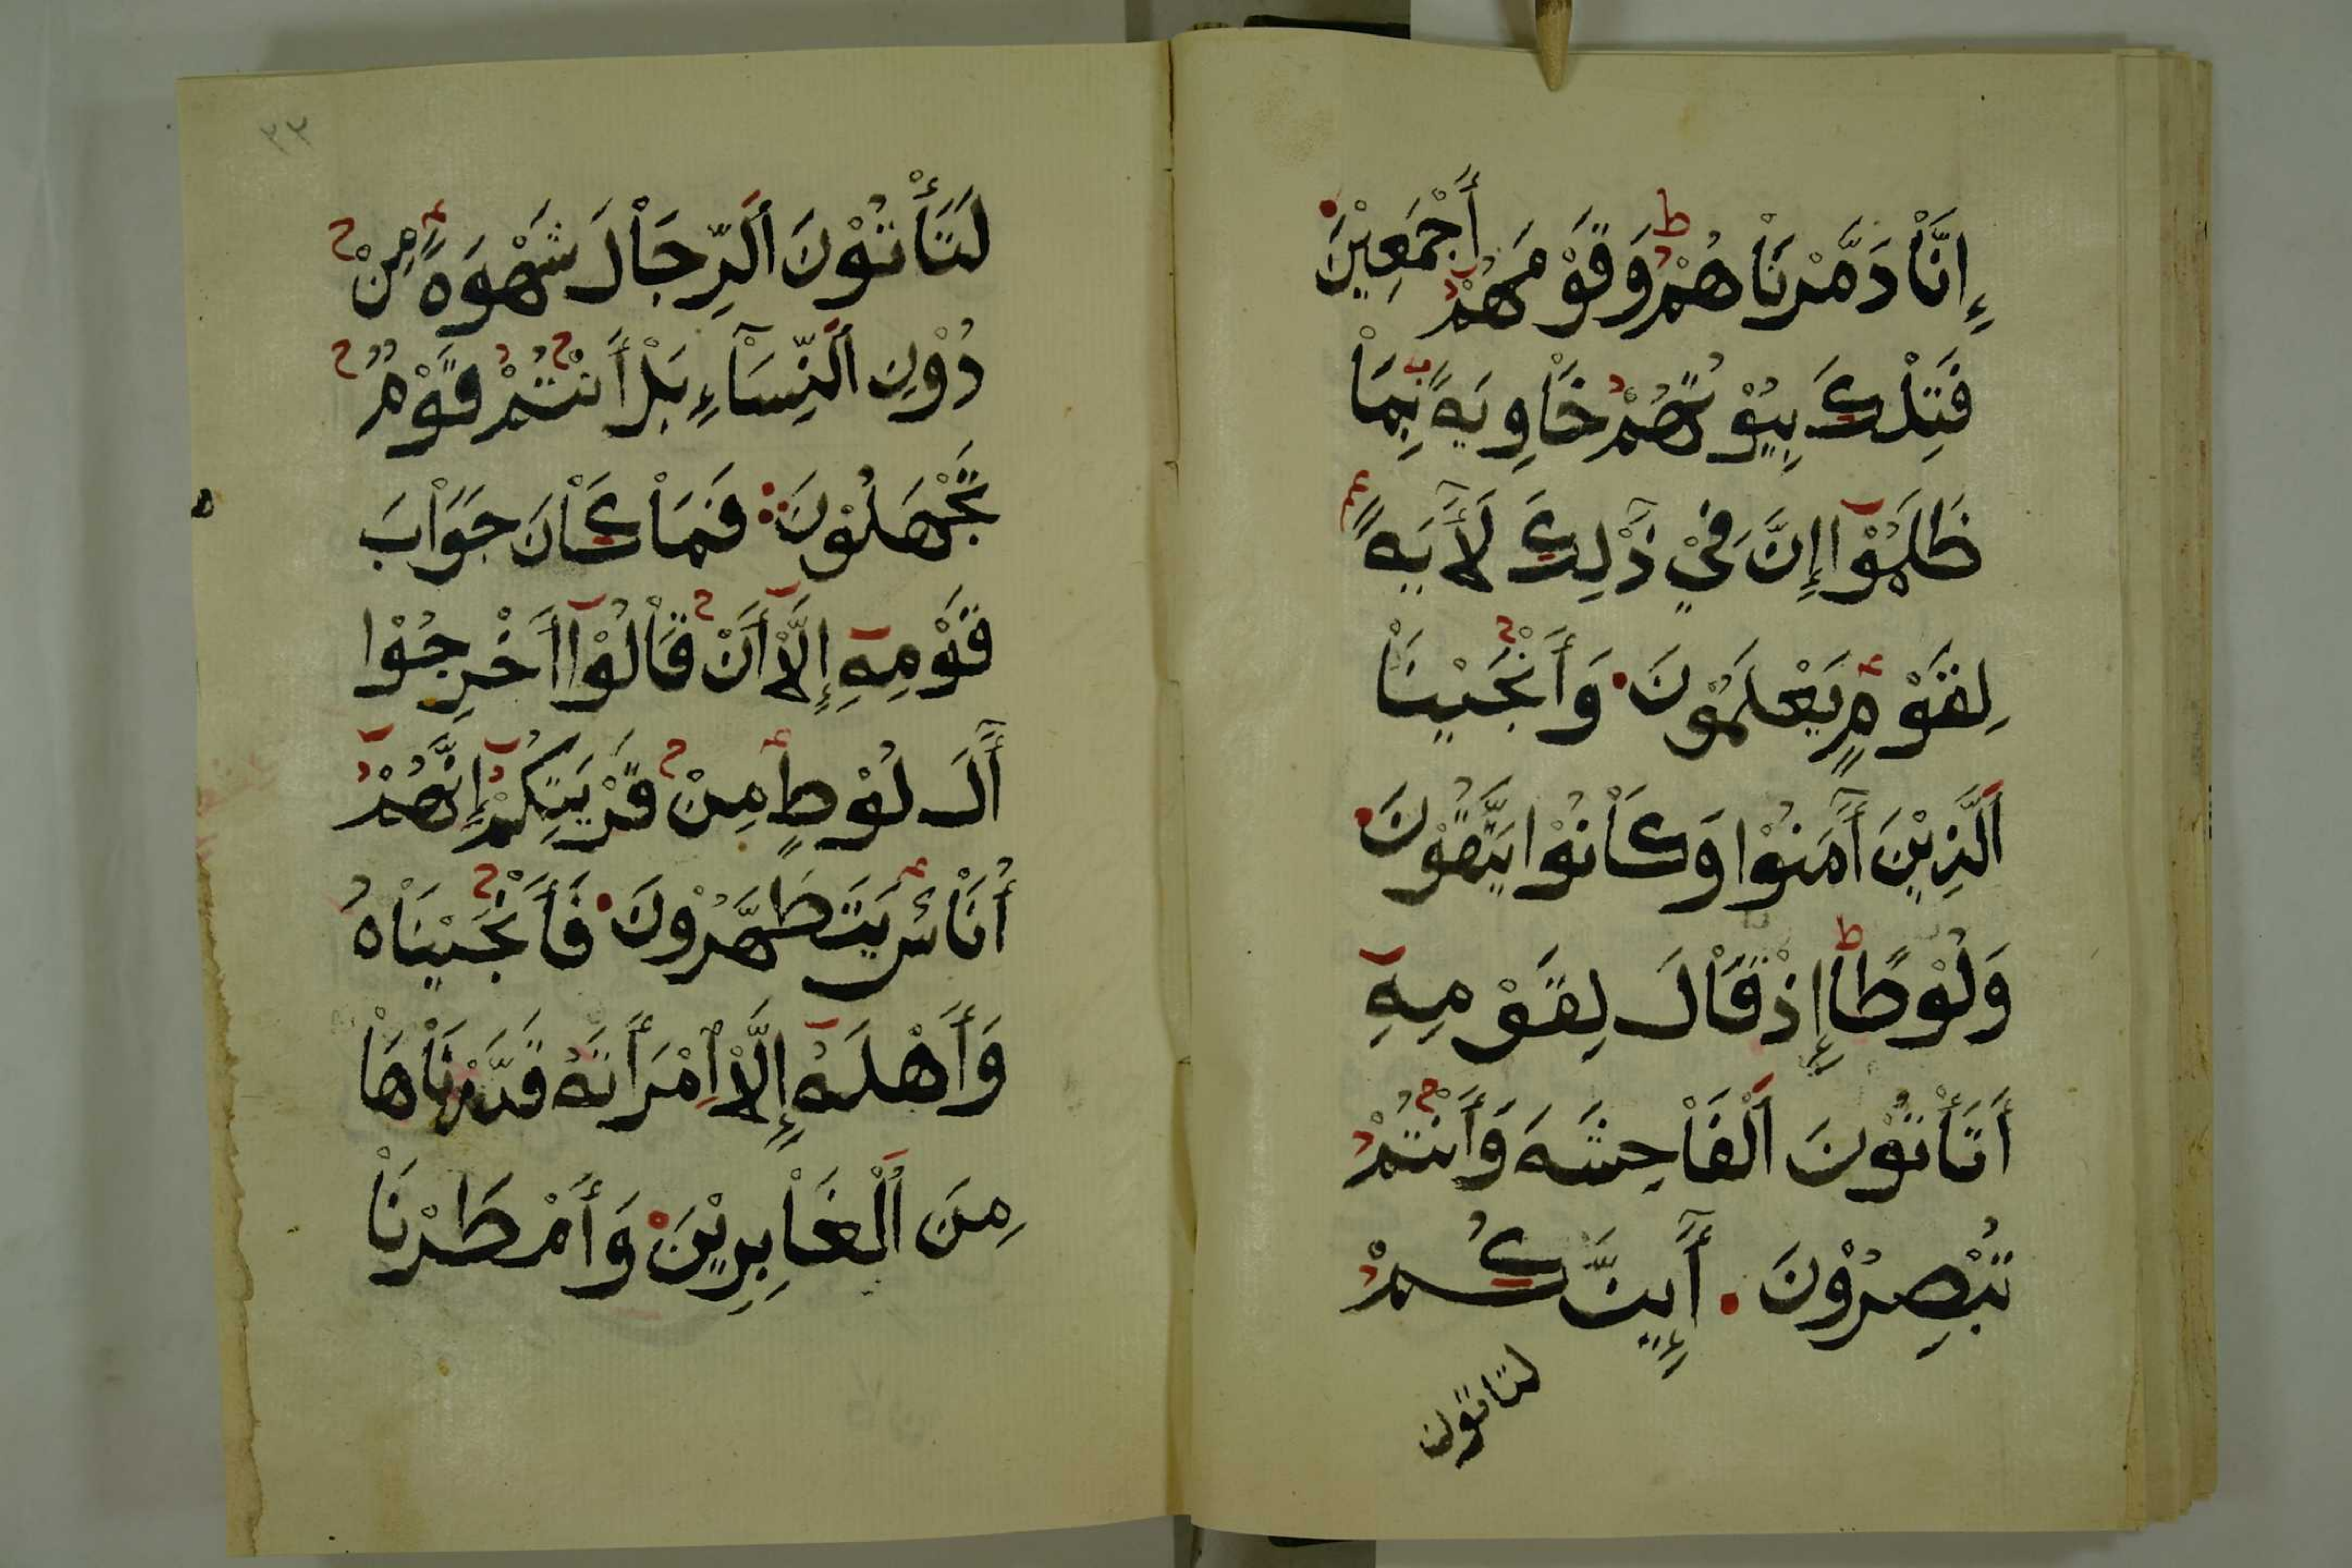 إِنَّاْ دَمَّرْنَاْهُمْ وَقَوْمَهُمْ أَجْمَعِيْنَ
فَتِلْكَ بِيُوْتُهُمْ خَاْوِيَةً بِمَاْ
ظَلَمُوْآ إِنَّ فِيْ ذَٰلِكَ لَأَٓيَةً
لِقَوْمٍ يَعْلَمُوْنَ وَأَنْجَيْنَاْ
اَلَّذِيْنَ أَٓمَنُوْا وَكَاْنُوْا يَتَّقُوْنَ
وَلُوْطًاْ إِذْ قَاْلَ لِقَوْمِهِ
أَتَأْتُوْنَ اَلْفَاْحِشَةَ وَأَنْتُمْ
تُبْصِرُوْنَ أَٓئِنَّكُمْ
لتاتون
لَتَأْتُوْنَ اَلرِّجَاْلَ شَهْوَةً مِنْ
دُوْنِ اَلنِّسَآْءِ بَلْ أَنْتُمْ قَوْمٌ
تَجْهَلُوْنَ فَمَاْ كَاْنَ جَوَاْبَ
قَوْمِهِ إِلَّاْ أَنْ قَاْلُوْآ أَخْرِجُوْا
أَٓلَ لُوْطٍ مِنْ قَرْيَتِكُمْ إِنَّهُمْ
أُنَاْسٌ يَتَطَهَّرُوْنَ فَأَنْجَيْنَاْهُ
وَأَهْلَهُ إِلَّاْ اِمْرَأَتَهُ قَدَّرْنَاْهَاْ
مِنَ اَلْغَاْبِرِيْنَ وَأَمْطَرْنَاْ
٣٣